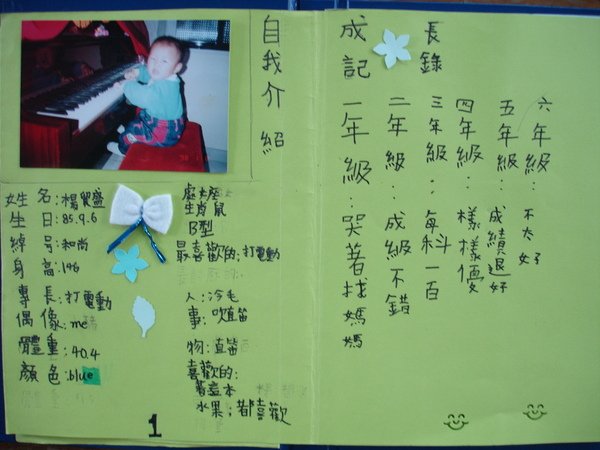 自我介紹
姓名:楊貿盛
生日:85.9.6
綽號:和尚
身高:146
專長:打電動
偶像:me
體重:40.4
顏色:blue
處女座
生肖鼠
B型
最喜歡的:打電動
人:冷毛
事:吹直笛
物:直笛
喜歡的:
水果:都喜歡
1
成長
記錄
一年級:哭著找媽媽
二年級:成級不錯
三年級:每科一百
四年級:樣樣優
五年級:成績退好
六年級:不太好